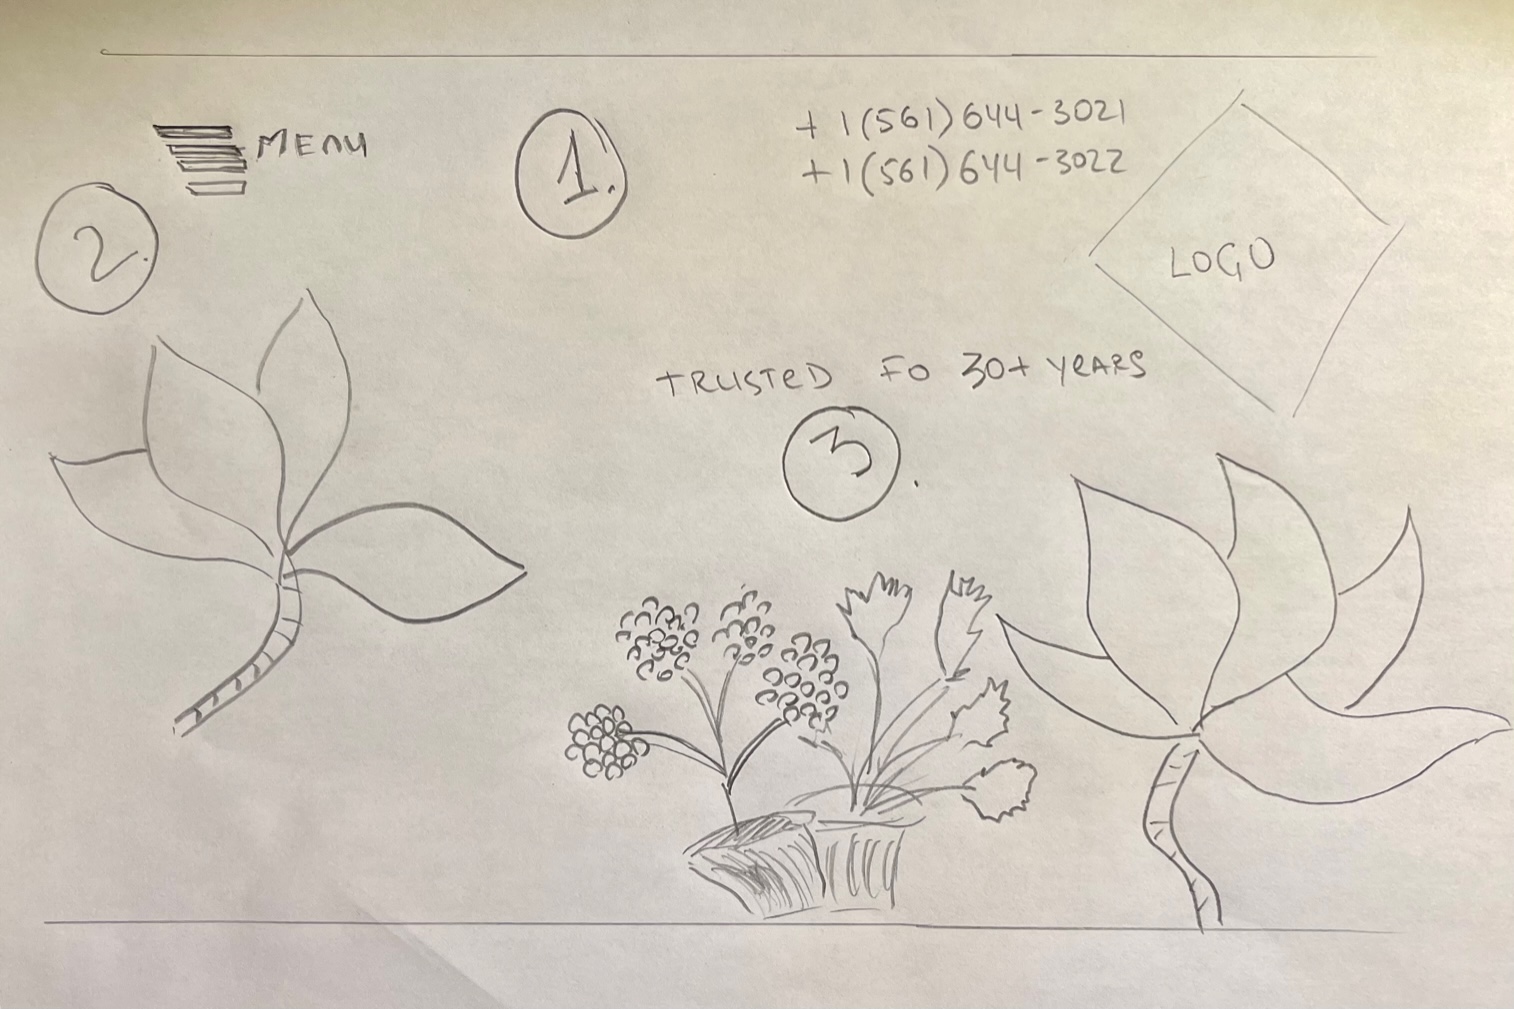 MENU
1.
+1(561)644-3021
+1(561)644-3022
2.
LOGO
TRUSTED FO 30+ YEARS
3.